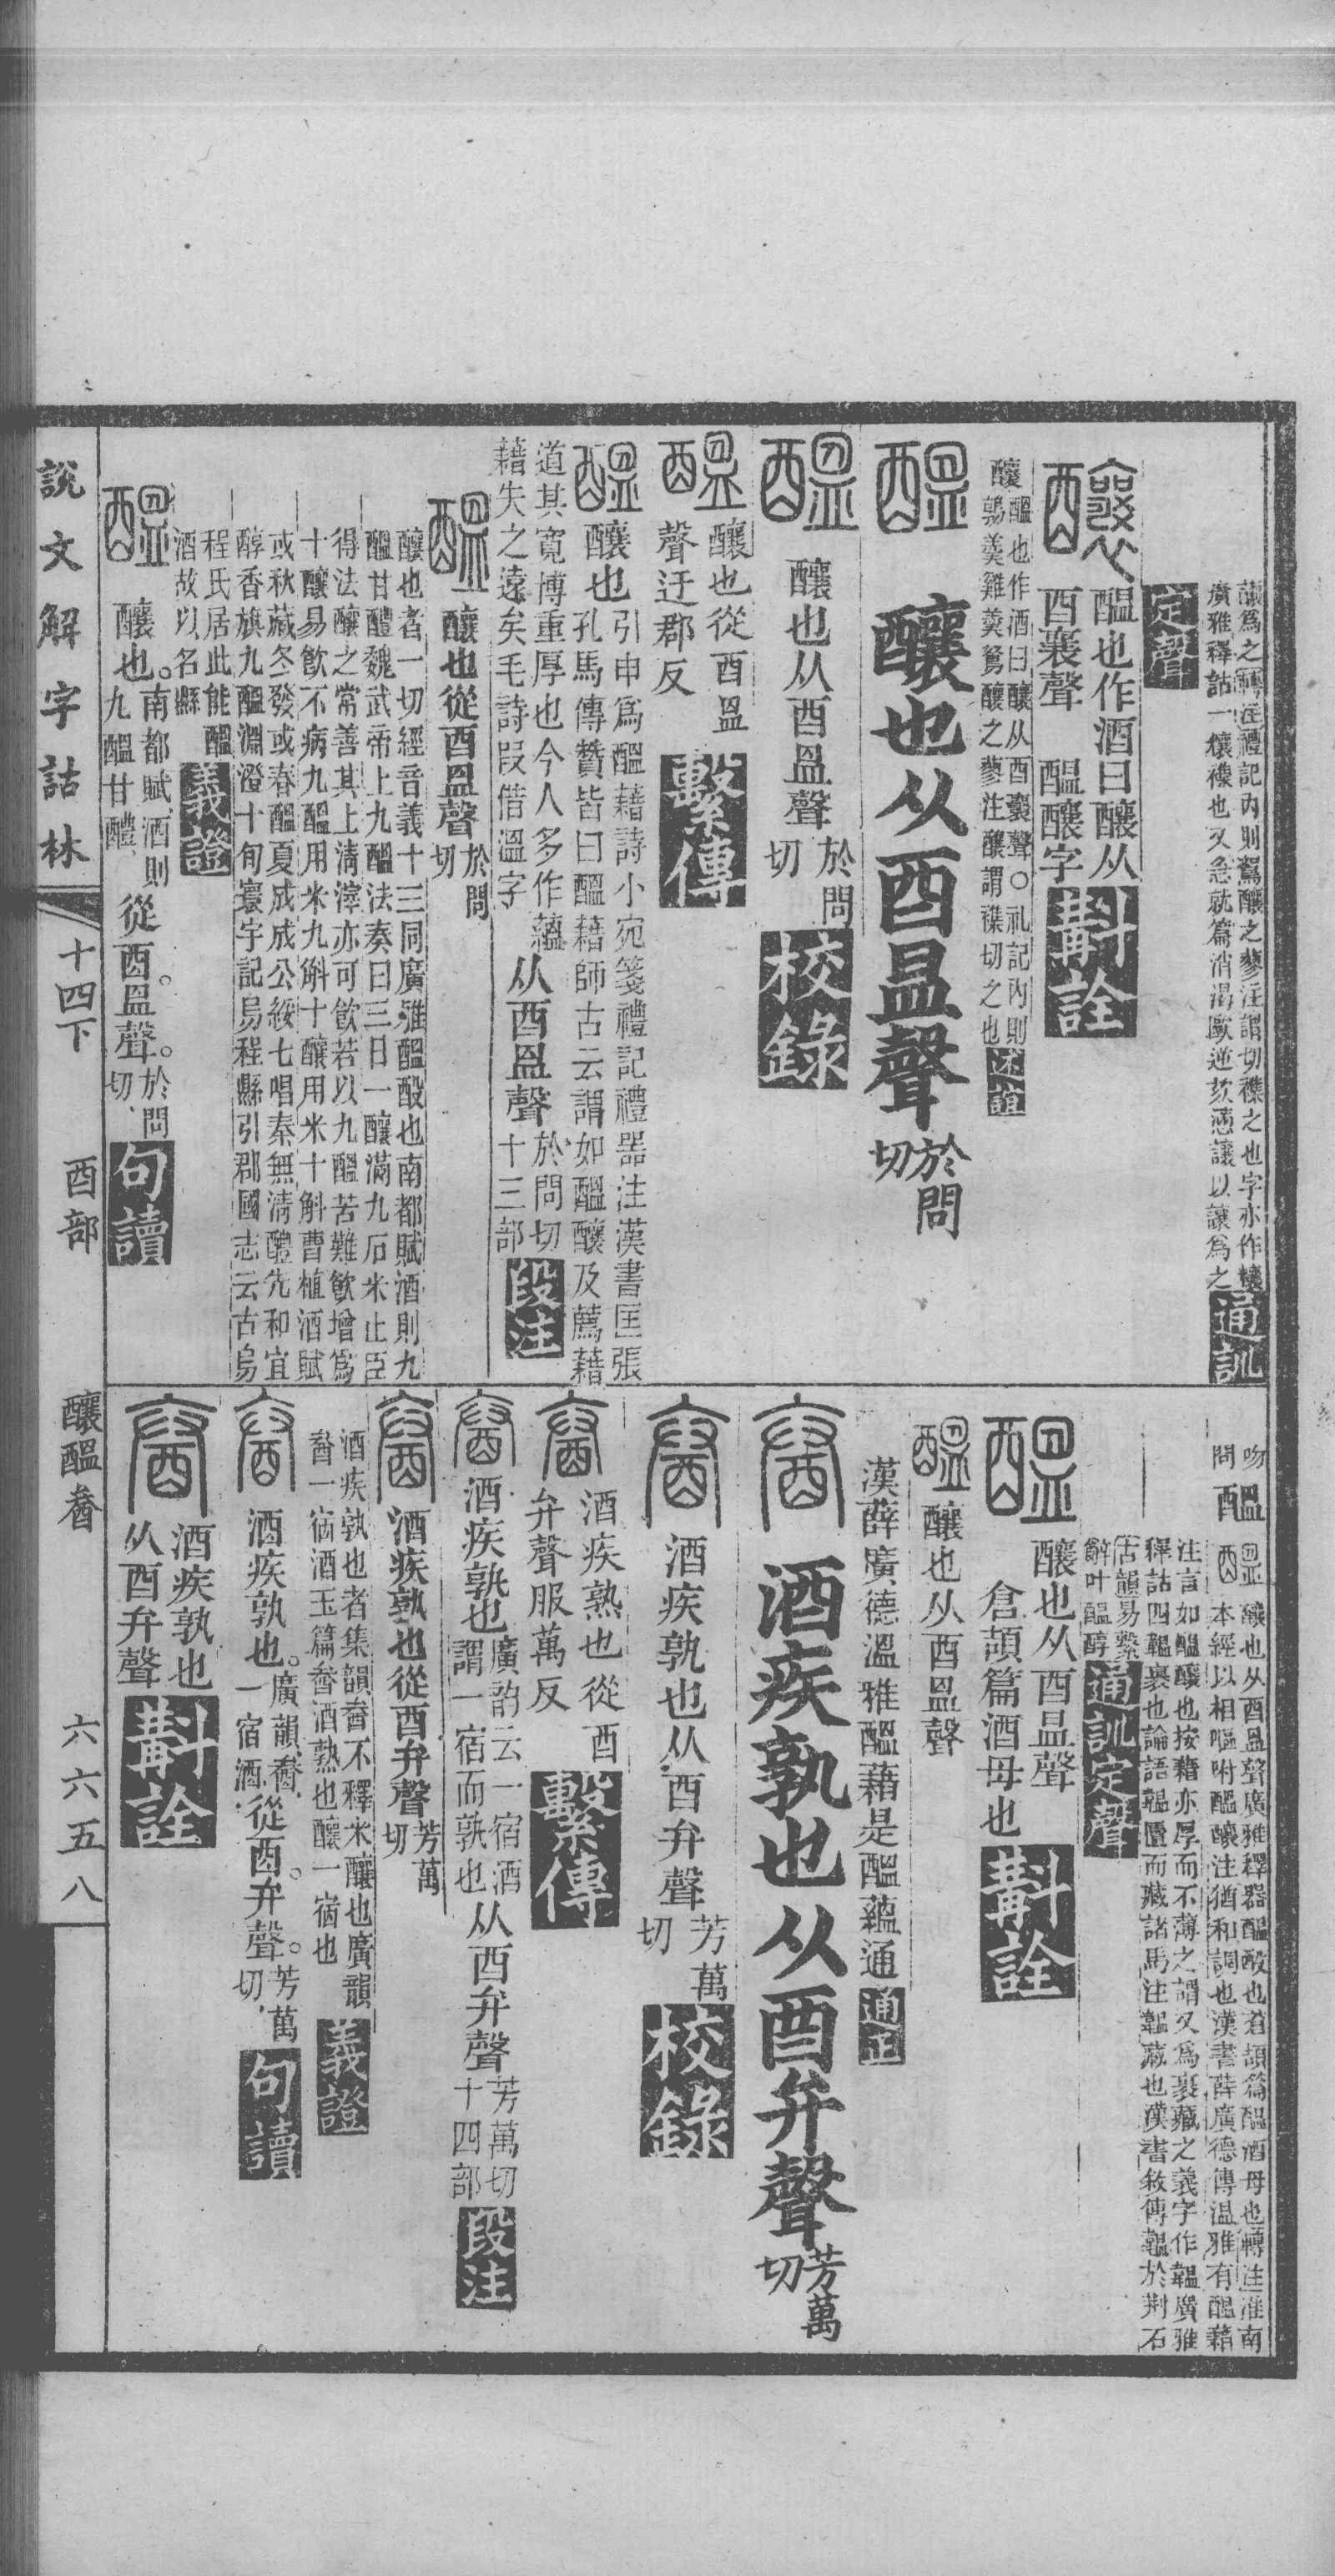 釀爲之轉注禮記內則鴽釀之蓼注謂切襍之也字亦作欀
廣雅釋詁一欀襍也又急就篇消渴歐逆欬懣讓以讓爲之
通訓
定聲
醖也作酒曰釀从
酉襄聲　醖釀字
斠詮
釀醖也作酒曰釀从酉襄聲○礼記內則
鶉羹雞羹鴽釀之蓼注釀謂襍切之也
述誼
釀也从酉昷聲
於問
切
釀也从酉昷聲
於問
切
校錄
釀也從酉昷
聲迂郡反
繫傳
釀也
引申爲醖藉詩小宛箋禮記禮器注漢書匡張
孔馬傳贊皆曰醖藉師古云謂如醖釀及薦藉
道其寬博重厚也今人多作蘊
藉失之遠矣毛詩叚借溫字
从酉昷聲
於問切
十三部
段注
釀也從酉昷聲
於問
切
釀也者一切經音義十三同廣雅醖酘也南都賦酒則九
醖甘醴魏武帝上九醖法奏曰三日一釀滿九石米止臣
得法釀之常善其上清滓亦可飮若以九醖苦難飮增爲
十釀易飮不病九醖用米九斛十釀用米十斛曹植酒賦
或秋藏冬發或春醖夏成成公綏七唱秦無淸醴先和宜
醇香旗九醖淵澄十旬寰宇記易程縣引郡國志云古烏
程氏居此能醖
酒故以名縣
義證
釀也。
南都賦酒則
九醖甘醴
從酉。昷聲。
於問
切
句讀
說文解字詁林
十四下
酉部
釀醖畚
六六五八
吻
問
醖
釀也从酉昷聲廣雅釋器醖酘也蒼頡篇醖酒母也轉注淮南
本經以相嘔咐醖釀注猶和調也漢書薛廣德傳温雅有醖藉
注言如醖釀也按藉亦厚而不薄之謂又爲裹藏之義字作韞廣雅
釋詁四韞裹也論語韞匵而藏諸馬注韞藏也漢書敘傳韞於荆石
古韻易繫
辭叶醖醇
通訓定聲
釀也从酉昷聲
倉頡篇酒母也
斠詮
釀也从酉昷聲
漢薛廣德溫雅醖藉是醖蘊通
通正
酒疾孰也从酉弁聲
芳萬
切
酒疾孰也从酉弁聲
芳萬
切
校錄
酒疾熟也從酉
弁聲服萬反
繫傳
酒疾孰也
廣韵云一宿酒
謂一宿而孰也
从酉弁聲
芳萬切
十四部
段注
酒疾孰也從酉弁聲
芳萬
切
酒疾孰也者集韻畚不釋米釀也廣韻
畚一宿酒玉篇畚酒熟也釀一宿也
義證
酒疾孰也。
廣韻畚
一宿酒
從酉。弁聲。
芳萬
切
句讀
酒疾孰也
从酉弁聲
斠詮